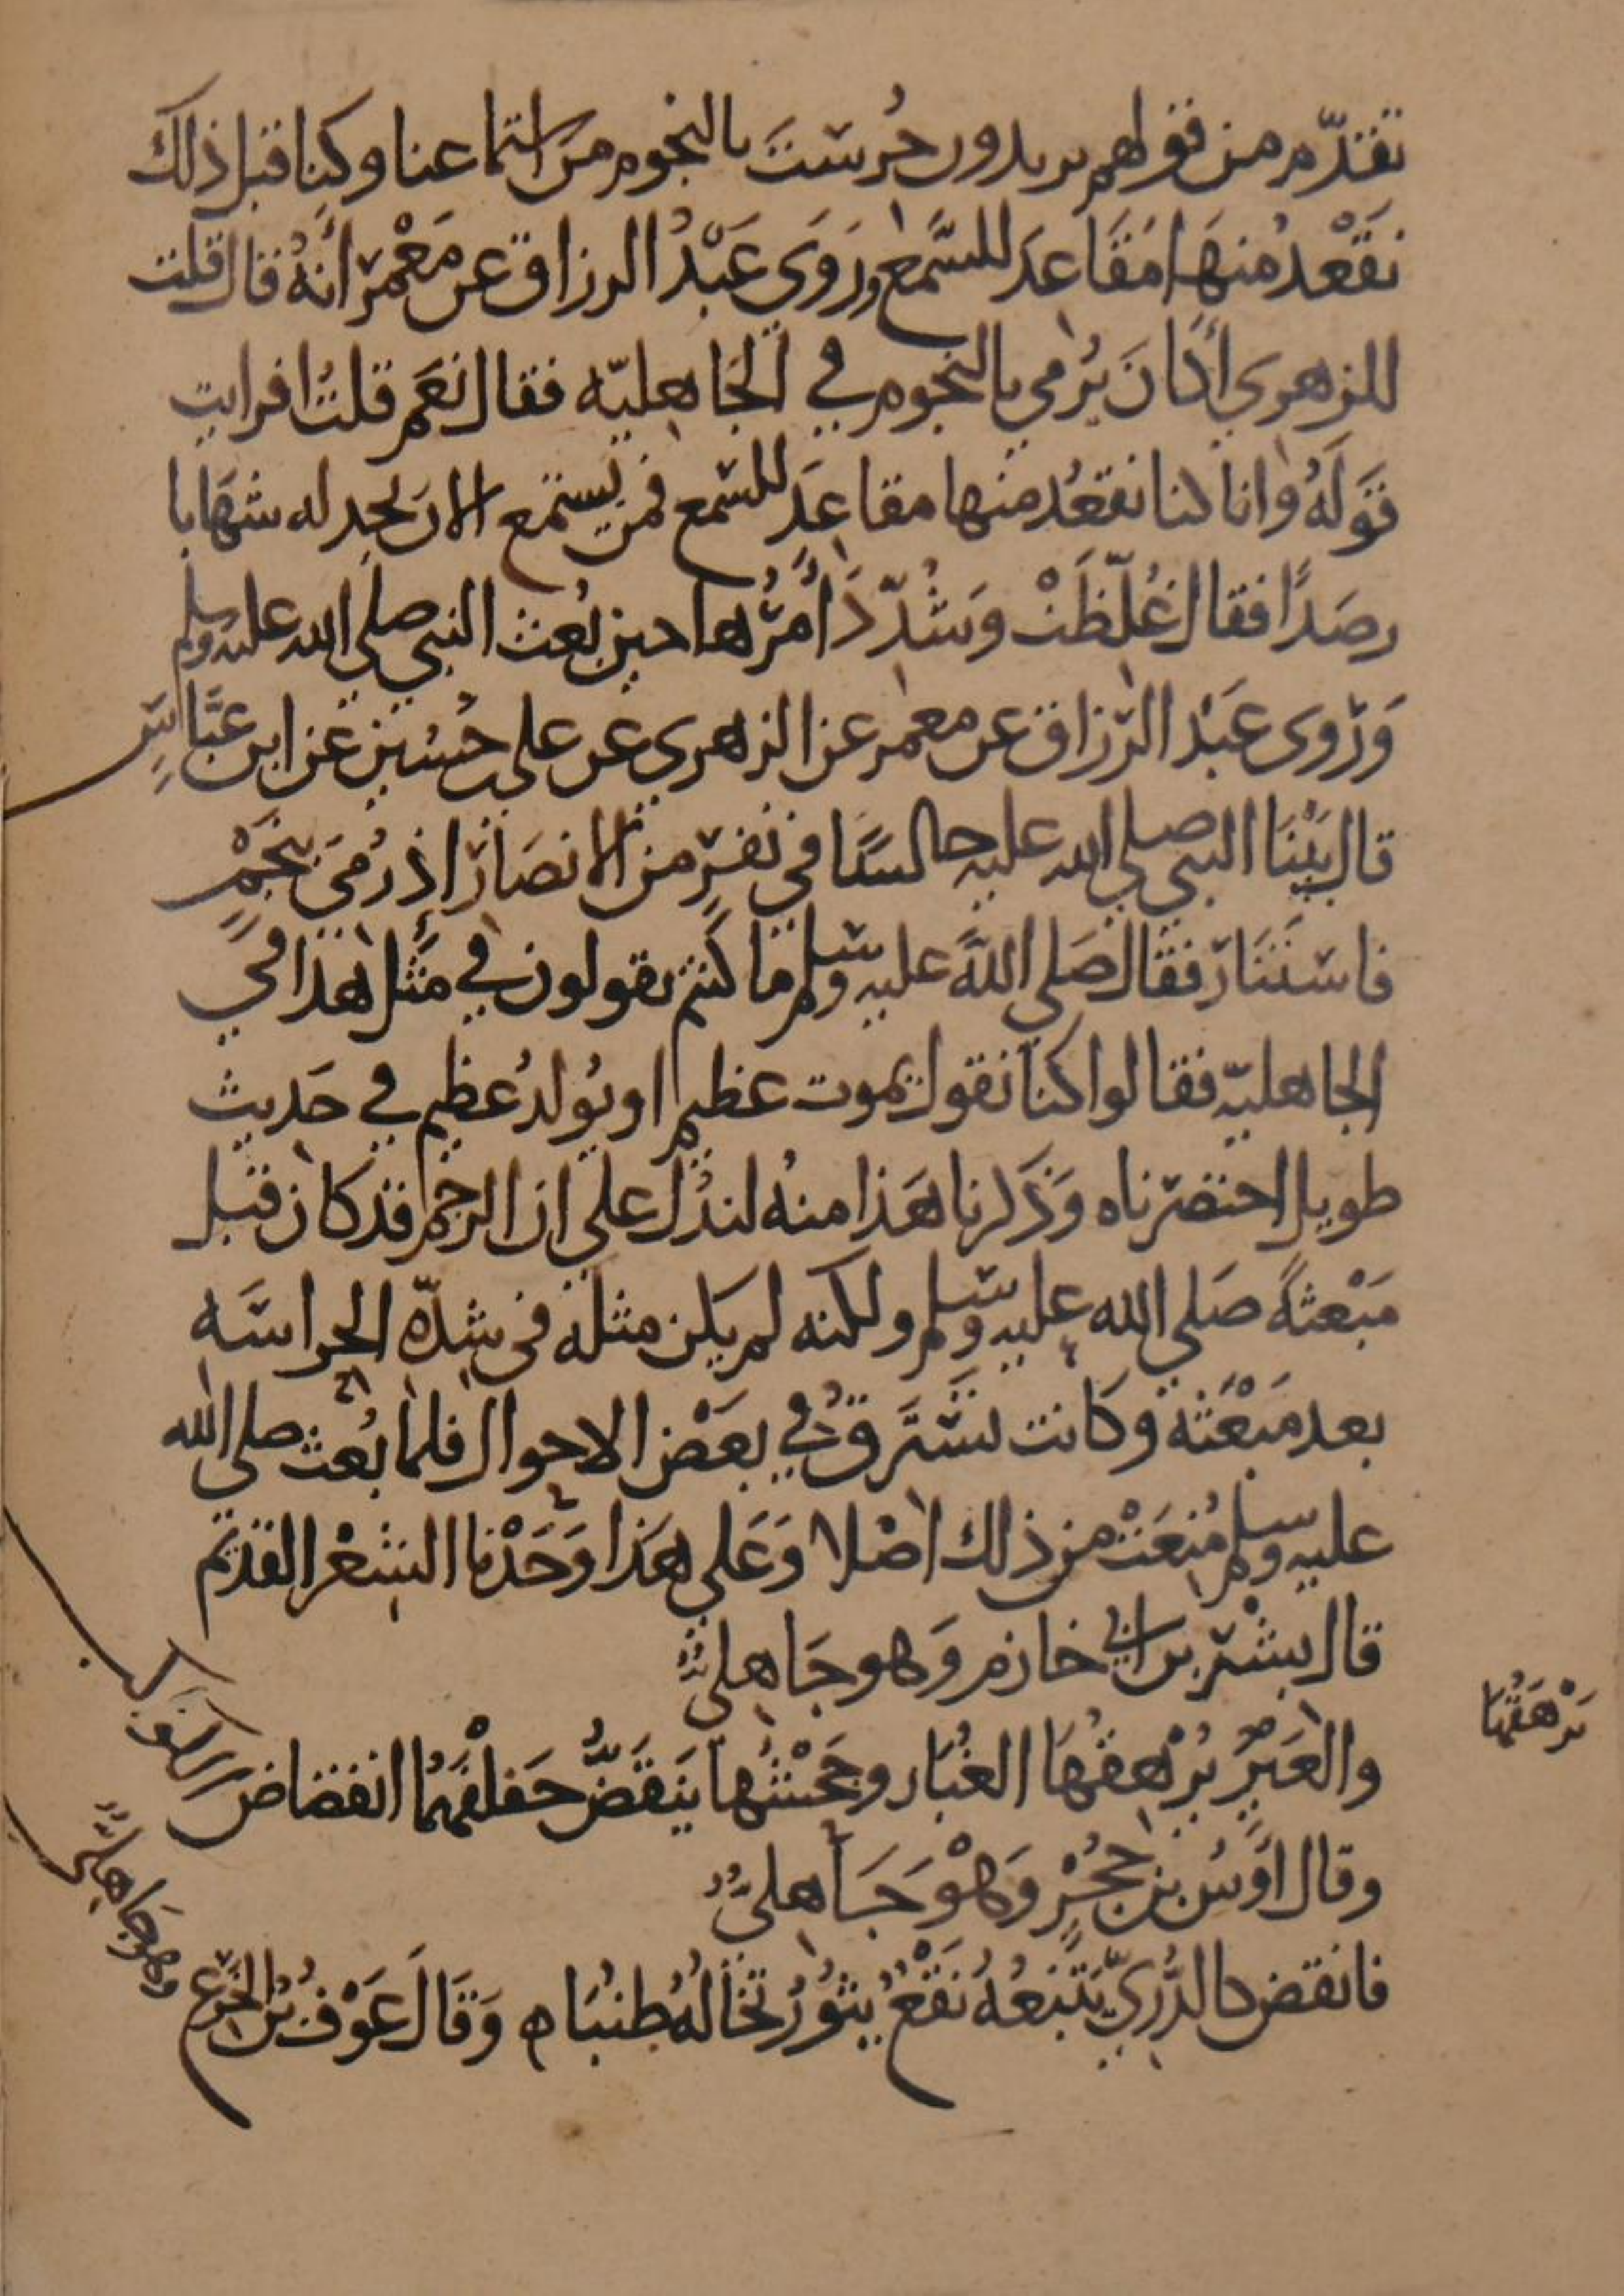 تقدّم من قولهم يريدون حُرسَت بالنجوم من استماعنا وكنا قبل ذلك
نَقْعدُ منهَا مَقَاعدَ للسَّمع ورَوَى عَبْدُ الرزاق عن مَعْمر أنهُ قال قلت
للزهري أكانَ يُرمي بالنجوم في الجَاهليّه فقال نعَم قلتُ افرايت
قَولَهُ وانا كنا نقعُد منها مقاعِدَ للسّمع فمن يَستمع الان يجد له شهَابا
رصَدًا فقال غُلّظَتْ وَشُدّدَ أمْرُها حين بُعث النبي صلي الله عليه وسلم
وَرَوى عَبْد الرّزاق عن معمر عن الزهري عن علي بن حُسَين عن ابن عبَّاسٍ
قال بَيْنَا النبي صلي الله عليه جالسًا في نفرٍ من الانصَار اذ رُميَ بنجَمْ
فاستَنَارَ فقال صَلي اللهُ عليه وسلم ما كُنتم تقولون في مثل هذا في
الجاهليّه فقالوا كنا نقول يموت عظيم او يُولدُ عظيم في حَديث
طويل اختصرناه وَذَكرنا هَذا منهُ لندُل علي ان الرجم قد كان قبل
مَبْعثهِ صَلي الله عليه وسلم ولكنه لم يكن مثله في شدّه الحراسَه
بعد مَبْعَثه وكَانت تَسْتَرقُ في بعَض الاحوال فلما بُعث صلى الله
عليه وسلم مُنعَتْ من ذلك اصْلا وَعَلي هَذا وَجَدْنا الشعْر القديم
قال بشر بن ابي خازم وَهو جَاهليٌّ
والعَيرُ يُرْهقُهَا الغُبَار وجَحْشُهَا يَنقَضُّ خَلفَهُمَا انقضاض الكوكب
يَرْهَقُهَا
وقال أوسُ بن حجُرٍ وَهْوَ جَاهليٌّ
وهو جاهليٌّ
فانقض كالدُّرِّيّ يَتْبَعُهُ نَقْعٌ يثوُرُ تخالُهُ طُنبَا ه وَقَالَ عَوْفُ بنُ الخَرِع